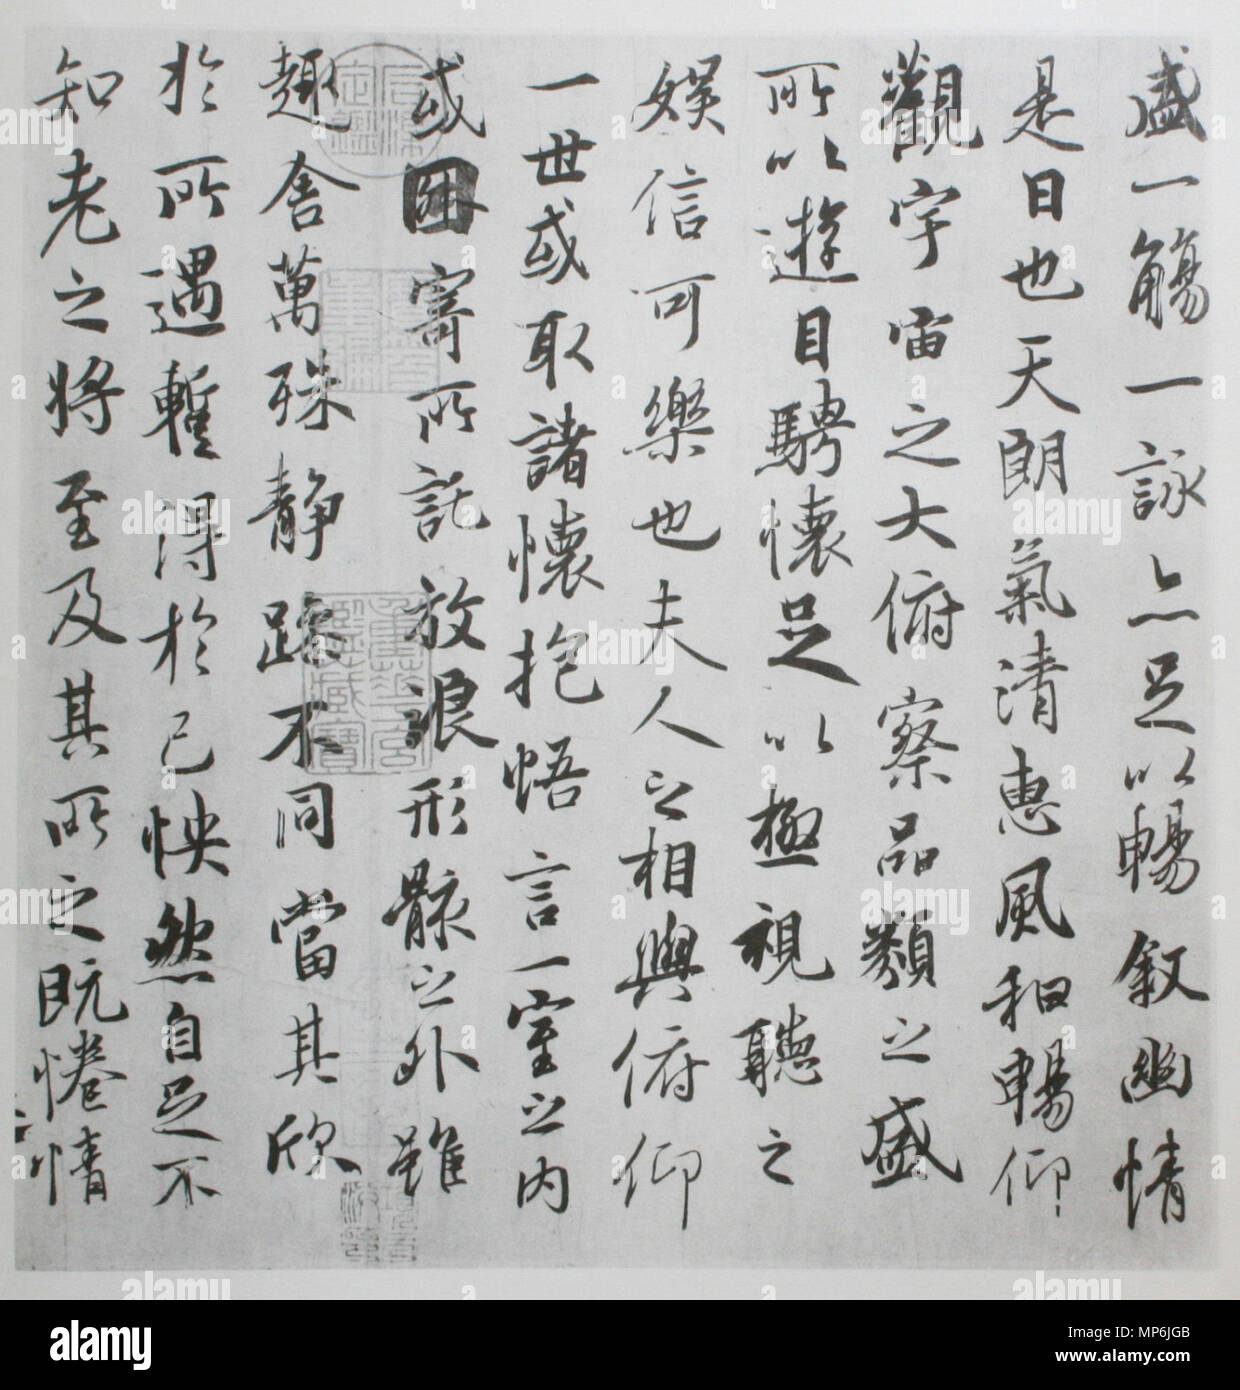 盛一觴一詠亦足以暢敘幽情
是日也天朗氣清惠風和暢仰
觀宇宙之大俯察品類之盛
所以遊目騁懷足以極視聽之
娛信可樂也夫人之相與俯仰
一世或取諸懷抱悟言一室之內
或因寄所託放浪形骸之外雖
趣舍萬殊靜躁不同當其欣
於所遇暫得於己怏然自足不
知老之將至及其所之既惓情
alamy
Image ID: MP6JGB
www.alamy.com